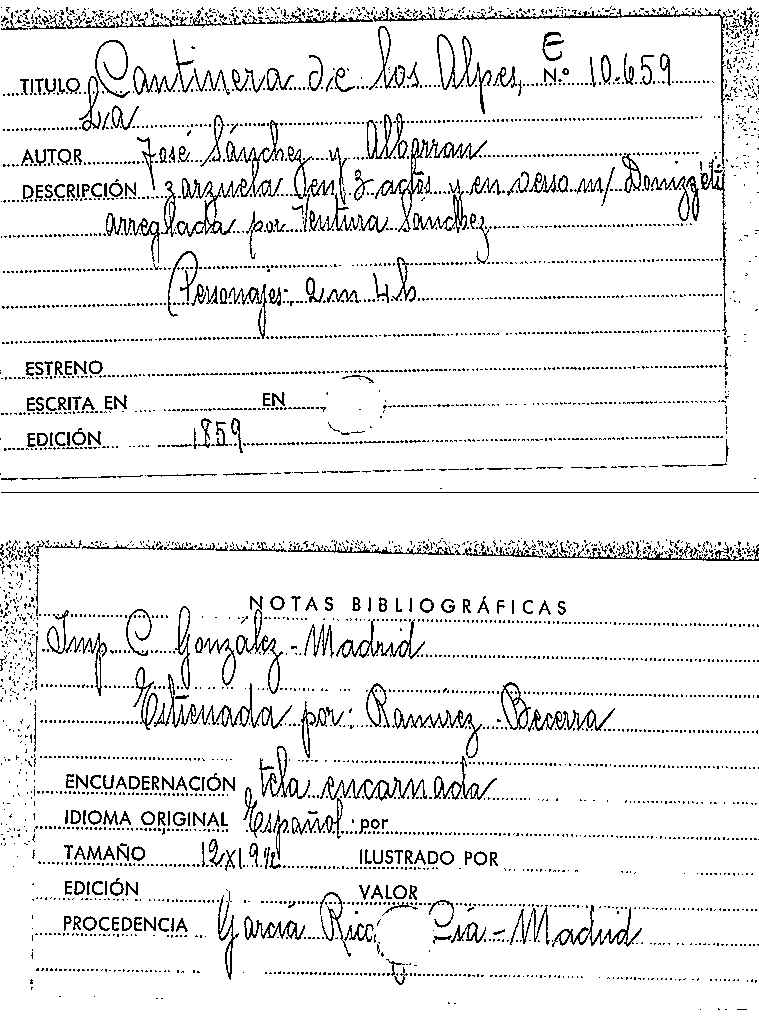 TITULO Cantinera de los Alpes, E N.º 10.659
La
AUTOR José Sánchez y Albarran
DESCRIPCIÓN zarzuela en 3 actos y en verso m/ Donizzetti
arreglada por Ventura Sánchez
Personajes: 2 m 4 h
ESTRENO
ESCRITA EN EN
EDICIÓN 1859
NOTAS BIBLIOGRÁFICAS
Imp. C. González - Madrid
Estrenada por: Ramírez - Becerra
ENCUADERNACIÓN tela encarnada
IDIOMA ORIGINAL Español por
TAMAÑO 12x19 1/2 ILUSTRADO POR
EDICIÓN VALOR
PROCEDENCIA García Rico Cía - Madrid